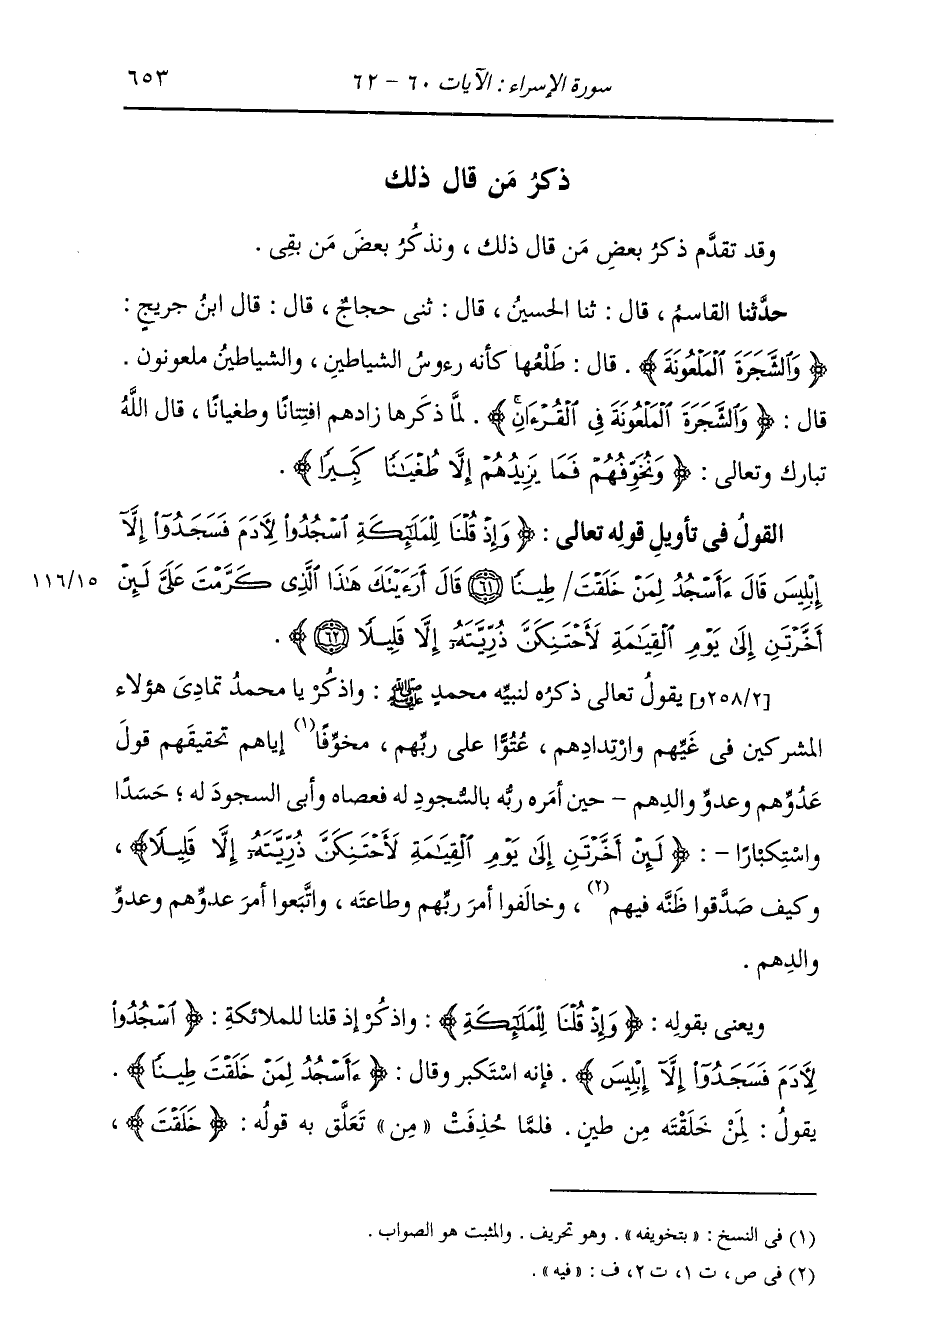 سورة الإسراء : الآيات ٦٠ – ٦٢ ٦٥٣
ذكرُ مَن قال ذلك
وقد تقدَّم ذكرُ بعضِ مَن قال ذلك ، ونذكُرُ بعضَ مَن بقِى .
حدَّثنا القاسمُ ، قال : ثنا الحسينُ ، قال : ثنى حجاجٌ ، قال : قال ابنُ جريجٍ :
﴿ وَٱلشَّجَرَةَ ٱلْمَلْعُونَةَ ﴾ . قال : طَلْعُها كأنه رءوسُ الشياطينِ ، والشياطينُ ملعونون .
قال : ﴿ وَٱلشَّجَرَةَ ٱلْمَلْعُونَةَ فِى ٱلْقُرْءَانِۚ ﴾ . لمَّا ذكَرها زادهم افتِتانًا وطغيانًا ، قال اللَّهُ
تبارك وتعالى : ﴿ وَنُخَوِّفُهُمْ فَمَا يَزِيدُهُمْ إِلَّا طُغْيَٰنًا كَبِيرًا ﴾ .
القولُ فى تأويلِ قولِه تعالى : ﴿ وَإِذْ قُلْنَا لِلْمَلَٰٓئِكَةِ ٱسْجُدُوا۟ لِـَٔادَمَ فَسَجَدُوٓا۟ إِلَّآ
إِبْلِيسَ قَالَ ءَأَسْجُدُ لِمَنْ خَلَقْتَ / طِينًا ﴿٦١﴾ قَالَ أَرَءَيْتَكَ هَٰذَا ٱلَّذِى كَرَّمْتَ عَلَىَّ لَئِنْ ١١٦/١٥
أَخَّرْتَنِ إِلَىٰ يَوْمِ ٱلْقِيَٰمَةِ لَأَحْتَنِكَنَّ ذُرِّيَّتَهُۥٓ إِلَّا قَلِيلًا ﴿٦٢﴾ ﴾ .
[٢٥٨/٢و] يقولُ تعالى ذكرُه لنبيِّه محمدٍ ﷺ : واذكُرْ يا محمدُ تمادِىَ هؤلاء
المشركين فى غَيِّهم وارْتِدادِهم ، عُتُوًّا على ربِّهم ، مخوِّفًا(١) إياهم تحقيقَهم قولَ
عَدُوِّهم وعدوِّ والدِهم – حين أمَره ربُّه بالسُّجودِ له فعصاه وأبى السجودَ له ؛ حَسَدًا
واسْتِكبارًا – : ﴿ لَئِنْ أَخَّرْتَنِ إِلَىٰ يَوْمِ ٱلْقِيَٰمَةِ لَأَحْتَنِكَنَّ ذُرِّيَّتَهُۥٓ إِلَّا قَلِيلًا ﴾ ،
وكيف صَدَّقوا ظَنَّه فيهم(٢) ، وخالَفوا أمرَ ربِّهم وطاعتَه ، واتَّبَعوا أمرَ عدوِّهم وعدوِّ
والدِهم .
ويعنى بقولِه : ﴿ وَإِذْ قُلْنَا لِلْمَلَٰٓئِكَةِ ﴾ : واذكُرْ إذ قلنا للملائكةِ : ﴿ ٱسْجُدُوا۟
لِـَٔادَمَ فَسَجَدُوٓا۟ إِلَّآ إِبْلِيسَ ﴾ . فإنه اسْتَكبر وقال : ﴿ ءَأَسْجُدُ لِمَنْ خَلَقْتَ طِينًا ﴾ .
يقولُ : لمَنْ خَلَقْتَه مِن طينٍ . فلمَّا حُذِفَتْ « مِن » تَعَلَّق به قولُه : ﴿ خَلَقْتَ ﴾ ،
(١) فى النسخ : « بتخويفه » . وهو تحريف . والمثبت هو الصواب .
(٢) فى ص ، ت ١ ، ت ٢ ، ف : « فيه » .